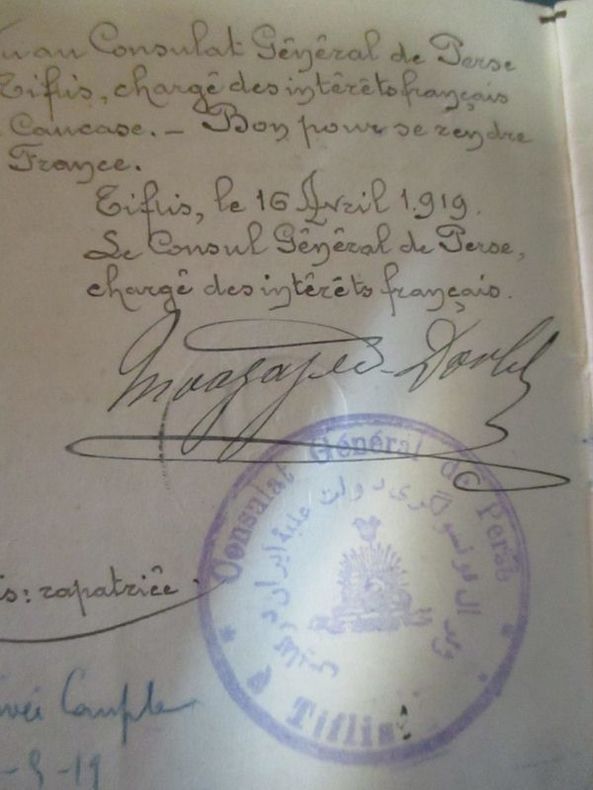 Vu au Consulat Général de Perse
Tiflis, chargé des intérêts français
Caucase. — Bon pour se rendre
France.
Tiflis, le 16 Avril 1.919.
Le Consul Général de Perse,
chargé des intérêts français.
Consulat Général de Perse
à Tiflis
: rapatriée.
-19